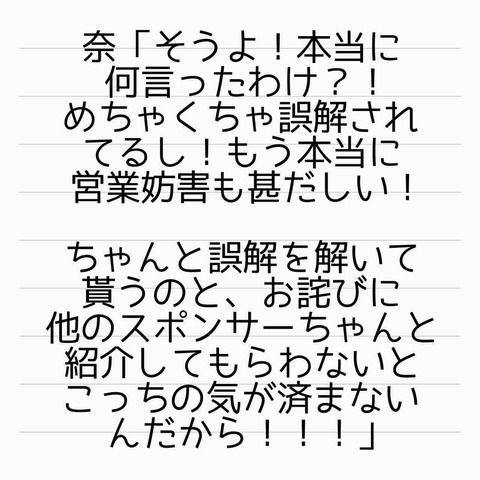 奈「そうよ！本当に
何言ったわけ？！
めちゃくちゃ誤解され
てるし！もう本当に
営業妨害も甚だしい！
ちゃんと誤解を解いて
貰うのと、お詫びに
他のスポンサーちゃんと
紹介してもらわないと
こっちの気が済まない
んだから！！！」